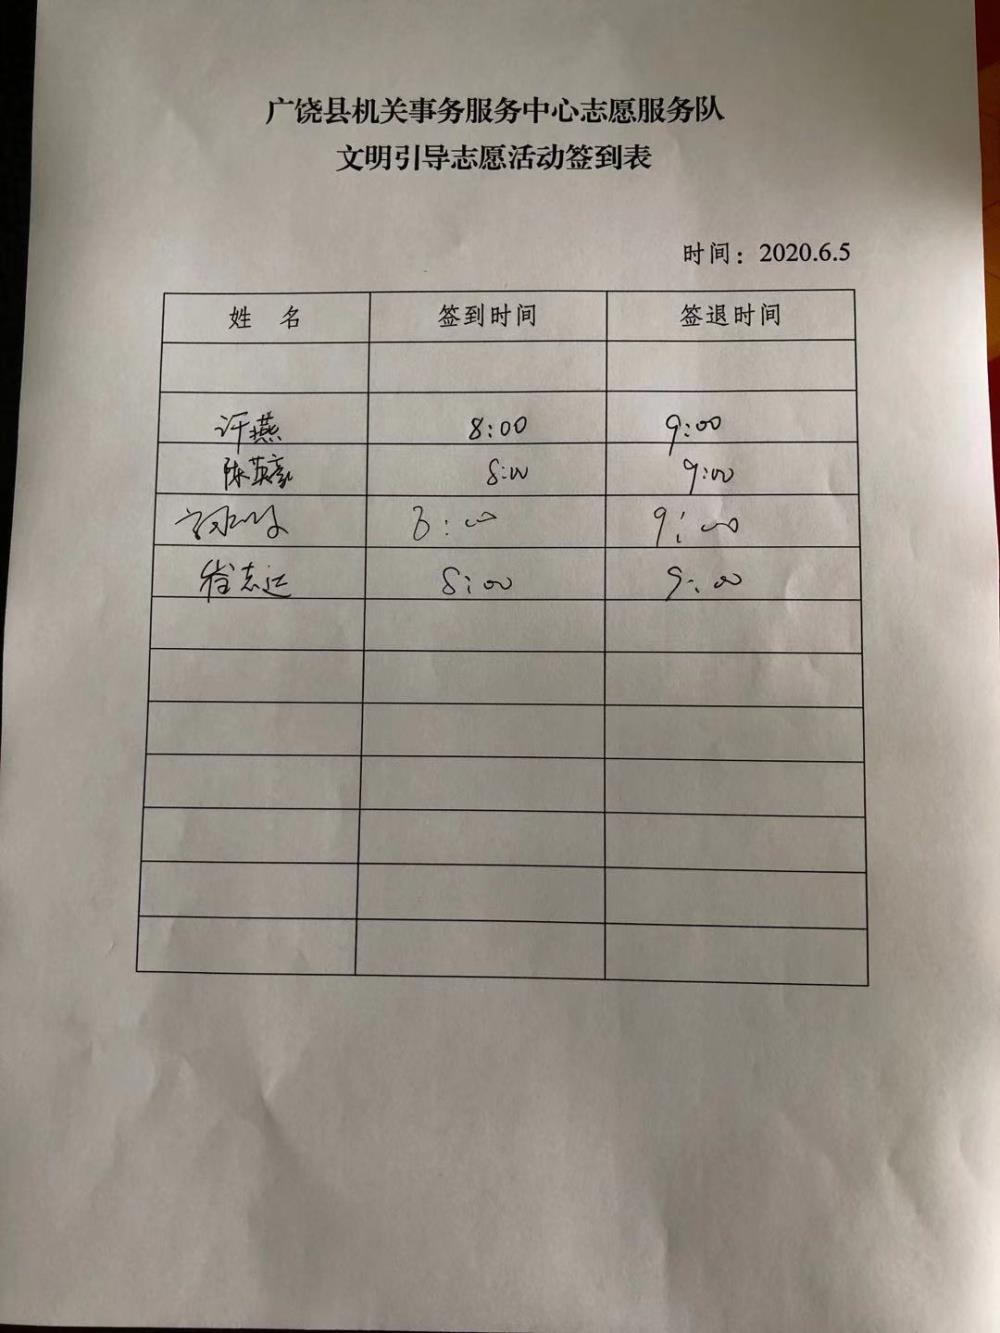 广饶县机关事务服务中心志愿服务队
文明引导志愿活动签到表
时间：2020.6.5
姓 名 签到时间 签退时间
许燕 8:00 9:00
陈英豪 8:00 9:00
8:00 9:00
徐志远 8:00 9:00